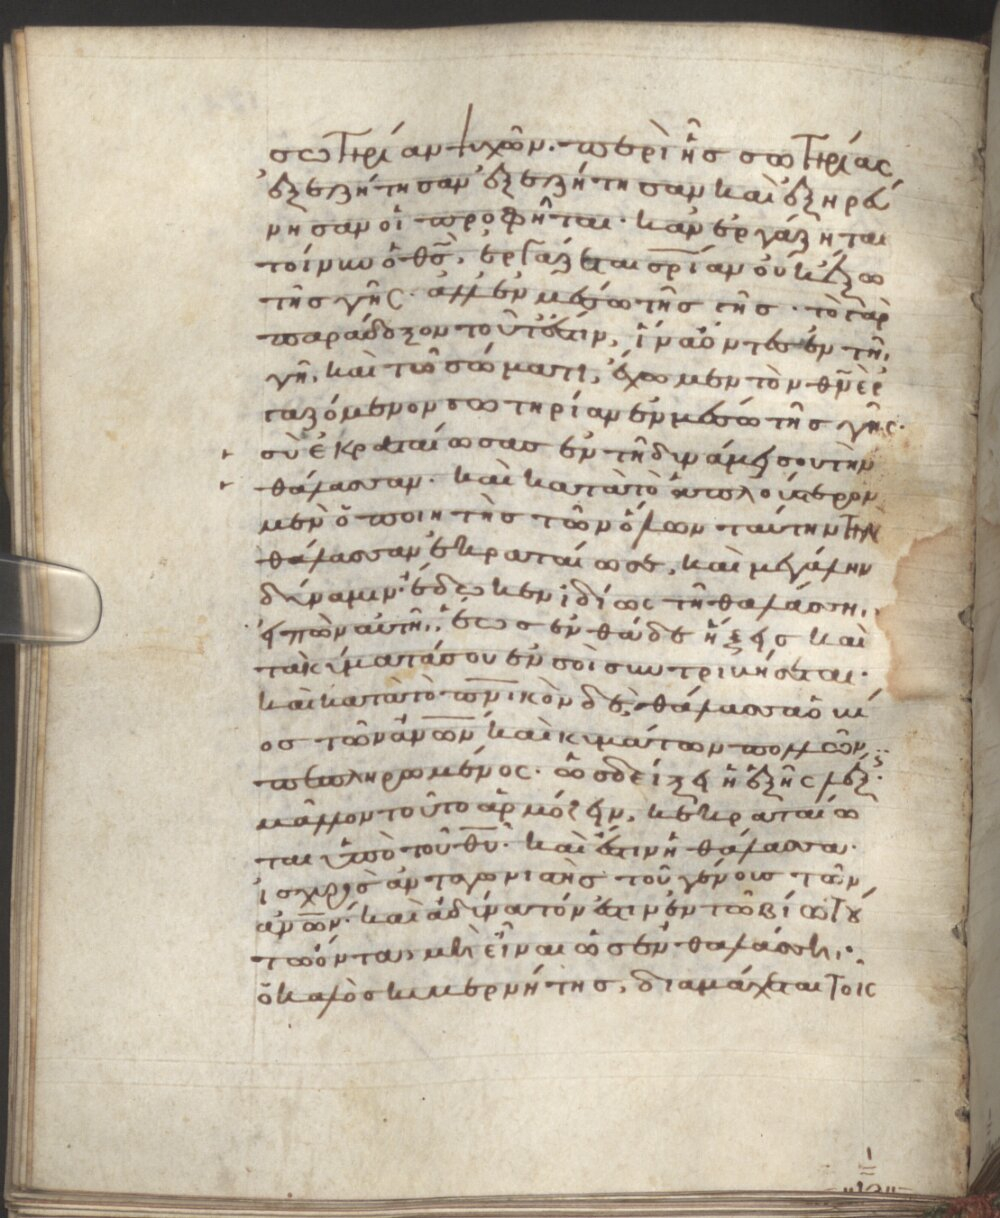 σωτηρίαν ψυχῶν. περὶ ἧς σωτηρίας
ἐξεζήτησαν ἐξεζήτησαν καὶ ἐξηρεύ
νησαν οἱ προφῆται. κἂν ἐργάζηται
τοίνυν ὁ θς, ἐργάζεται σρίαν οὐκ ἔξω
τῆς γῆς. ἀλλ' ἐν μέσω τῆς γῆς. τὸ γὰρ
παράδοξον τοῦτό ἐστιν, ἵνα ὄντες ἐν τῆ
γῆ, καὶ τῶ σώματι, ἔχωμεν τὸν θν ἐρ
γαζόμενον σωτηρίαν ἐν μέσω τῆς γῆς.
σὺ ἐκραταίωσας ἐν τῆ δυνάμει σου τὴν
θάλασσαν. καὶ κατὰ τὸ ἁπλούστερον
μὲν ὁ ποιητὴς τῶν ὅλων ταύτην τὴν
θάλασσαν ἐκραταίωσε, καὶ μεγάλην
δύναμιν ἔδωκεν ἰδίως τῆ θαλάσση,
εἰπὼν αὐτῆ, ἕως ἐνθάδε ἥξεις καὶ
τὰ κύματά σου ἐν σοὶ συντριβήσεται.
καὶ κατὰ τὸ πνικὸν δὲ, θάλασσα ὁ βί
ος τῶν ἀνων καὶ κυμάτων πολλῶν
πεπληρωμένος. ὡς δείξει ἡ ἑξῆς λέξ
μᾶλλον τοῦτο ἁρμόζειν, κεκραταίω
ται ὑπὸ τοῦ θυ. καὶ ἔστιν ἡ θάλασσα
ἰσχυρὸς ἀνταγωνιστὴς τοῦ γένους τῶν
ἀνων. καὶ ἀδύνατόν ἐστιν ἐν τῶ βίω τού
τω ὄντα μὴ εἶναι ὡς ἐν θαλάσση.
ὁ καλὸς κυβερνήτης, διαμάχεται τοῖς